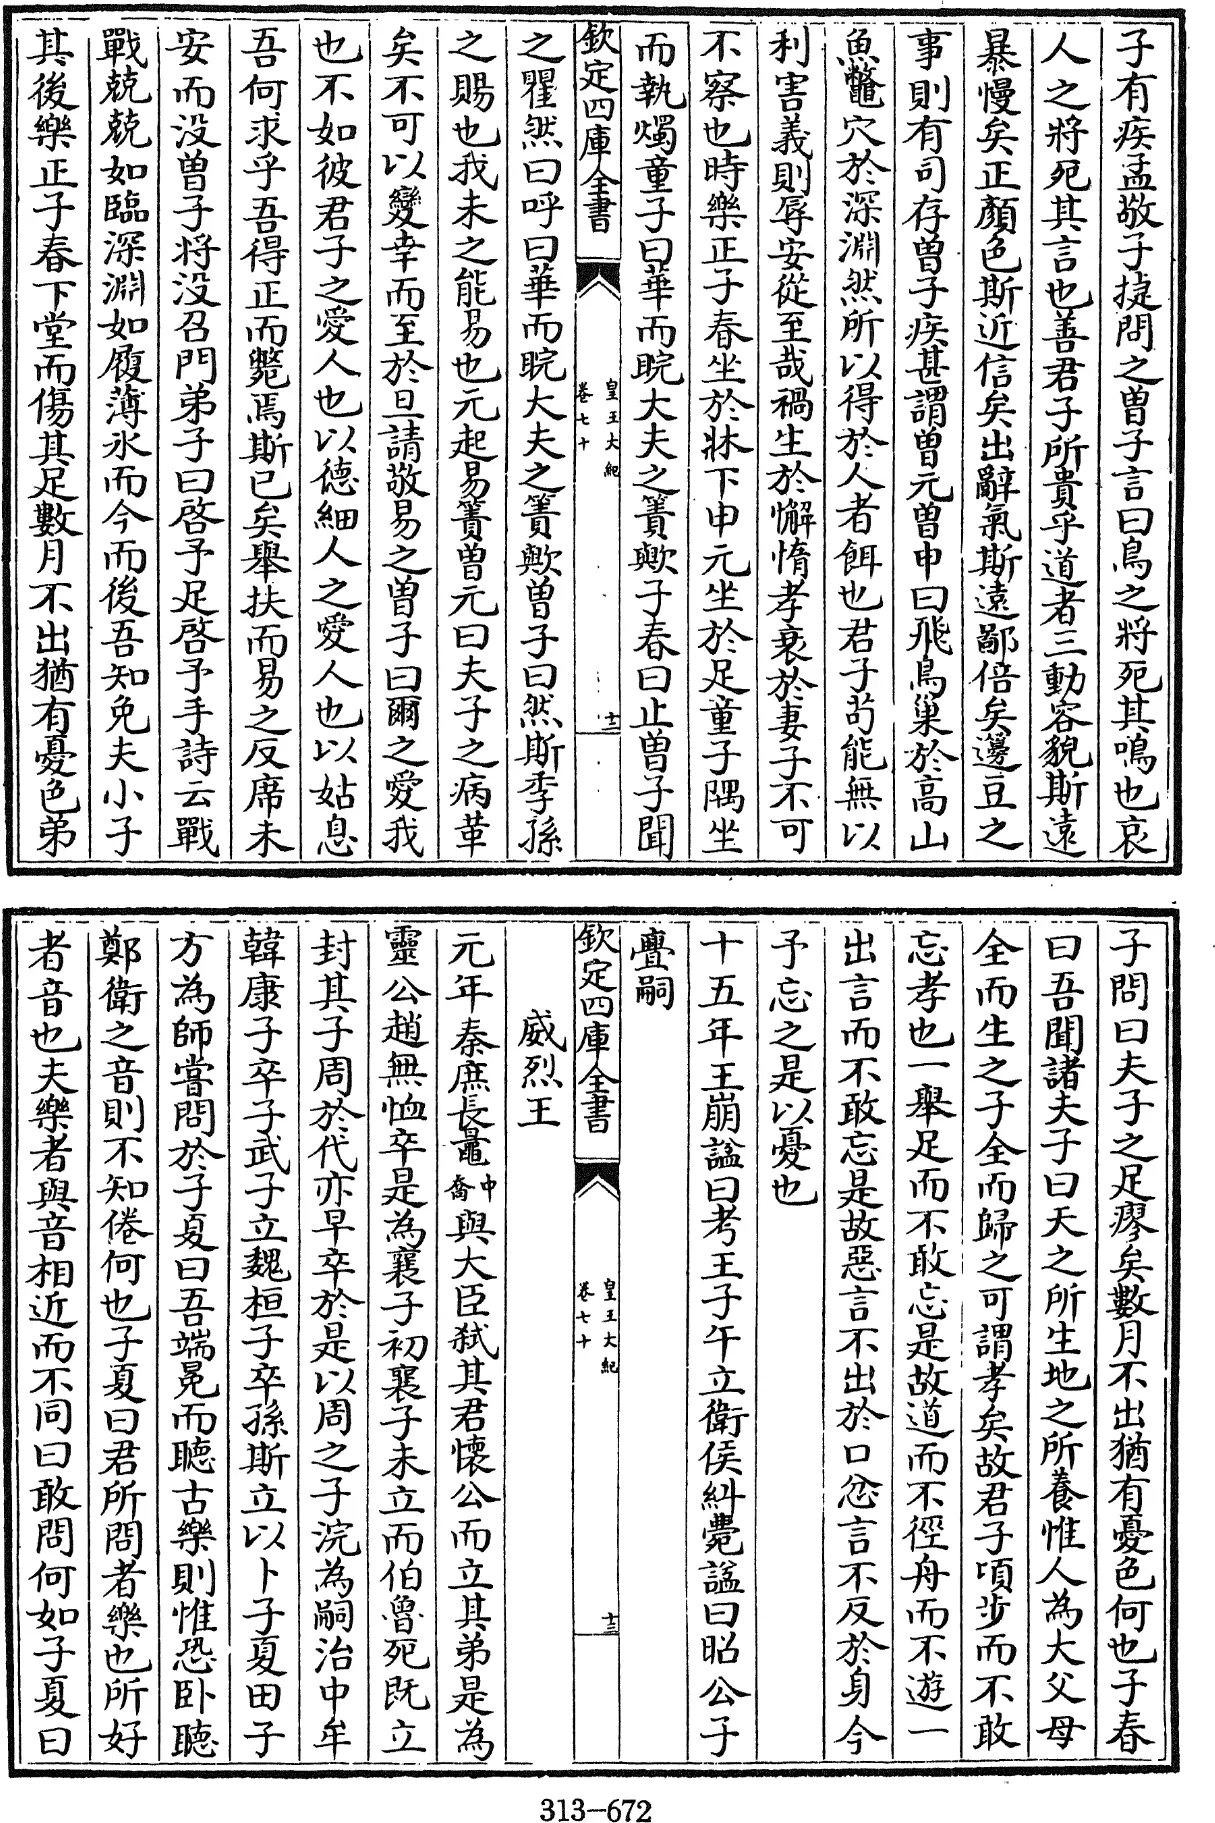 子有疾孟敬子捷問之曾子言曰鳥之將死其鳴也哀
人之將死其言也善君子所貴乎道者三動容貌斯遠
暴慢矣正顏色斯近信矣出辭氣斯遠鄙倍矣籩豆之
事則有司存曾子疾甚謂曾元曾申曰飛鳥巢於高山
魚鼈穴於深淵然所以得於人者餌也君子茍能無以
利害義則辱安從至哉禍生於懈惰孝衰於妻子不可
不察也時樂正子春坐於牀下申元坐於足童子隅坐
而執燭童子曰華而睆大夫之簀歟子春曰止曾子聞
欽定四庫全書
皇王大紀
卷七十
十二
之瞿然曰呼曰華而睆大夫之簀歟曾子曰然斯季孫
之賜也我未之能易也元起易簀曾元曰夫子之病革
矣不可以變幸而至於旦請敬易之曾子曰爾之愛我
也不如彼君子之愛人也以德細人之愛人也以姑息
吾何求乎吾得正而斃焉斯已矣舉扶而易之反席未
安而没曾子將没召門弟子曰啓予足啓予手詩云戰
戰兢兢如臨深淵如履薄氷而今而後吾知免夫小子
其後樂正子春下堂而傷其足數月不出猶有憂色弟
子問曰夫子之足瘳矣數月不出猶有憂色何也子春
曰吾聞諸夫子曰天之所生地之所養惟人為大父母
全而生之子全而歸之可謂孝矣故君子頃步而不敢
忘孝也一舉足而不敢忘是故道而不徑舟而不遊一
出言而不敢忘是故惡言不出於口忿言不反於身今
予忘之是以憂也
十五年王崩諡曰考王子午立衛侯糾薨諡曰昭公子
亹嗣
欽定四庫全書
皇王大紀
卷七十
十三
威烈王
元年秦庶長鼂中喬與大臣弑其君懷公而立其弟是為
靈公趙無恤卒是為襄子初襄子未立而伯魯死既立
封其子周於代亦早卒於是以周之子浣為嗣治中牟
韓康子卒子武子立魏桓子卒孫斯立以卜子夏田子
方為師嘗問於子夏曰吾端冕而聽古樂則惟恐卧聽
鄭衛之音則不知倦何也子夏曰君所問者樂也所好
者音也夫樂者與音相近而不同曰敢問何如子夏曰
313-672